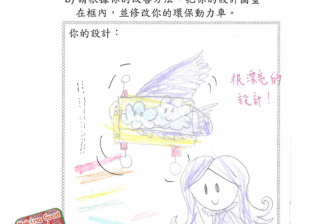 b) 請根據你的改善方法，把你的設計圖畫
在框內，並修改你的環保動力車。
你的設計：
很漂亮的
設計！